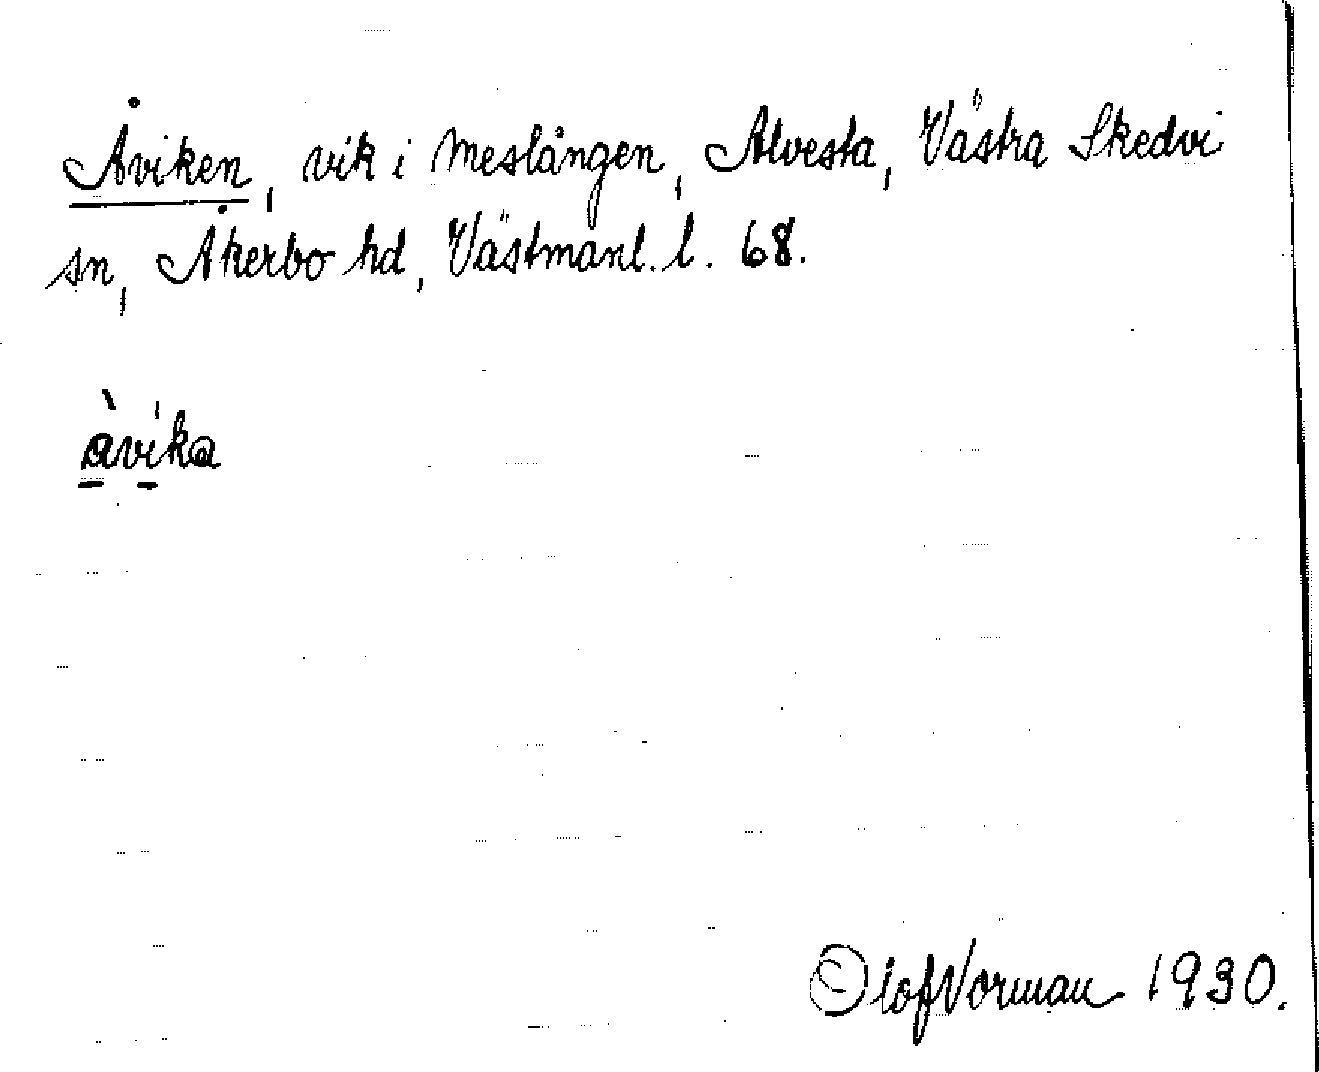 Åviken, vik i Meslången, Alvesta, Västra Skedvi
sn, Åkerbo hd, Västmanl. l. 68.
àvika
Olof Vorman 1930.